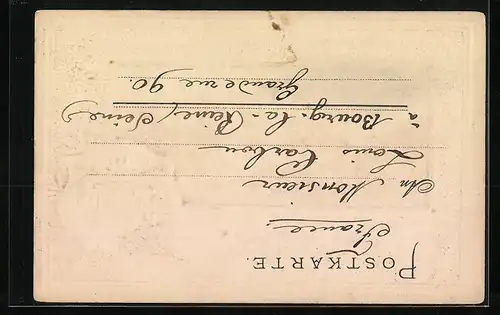 POSTKARTE.
France.
An Monsieur
Louis Carbou
à Bourg-la-Reine (Seine)
Grande rue 90.